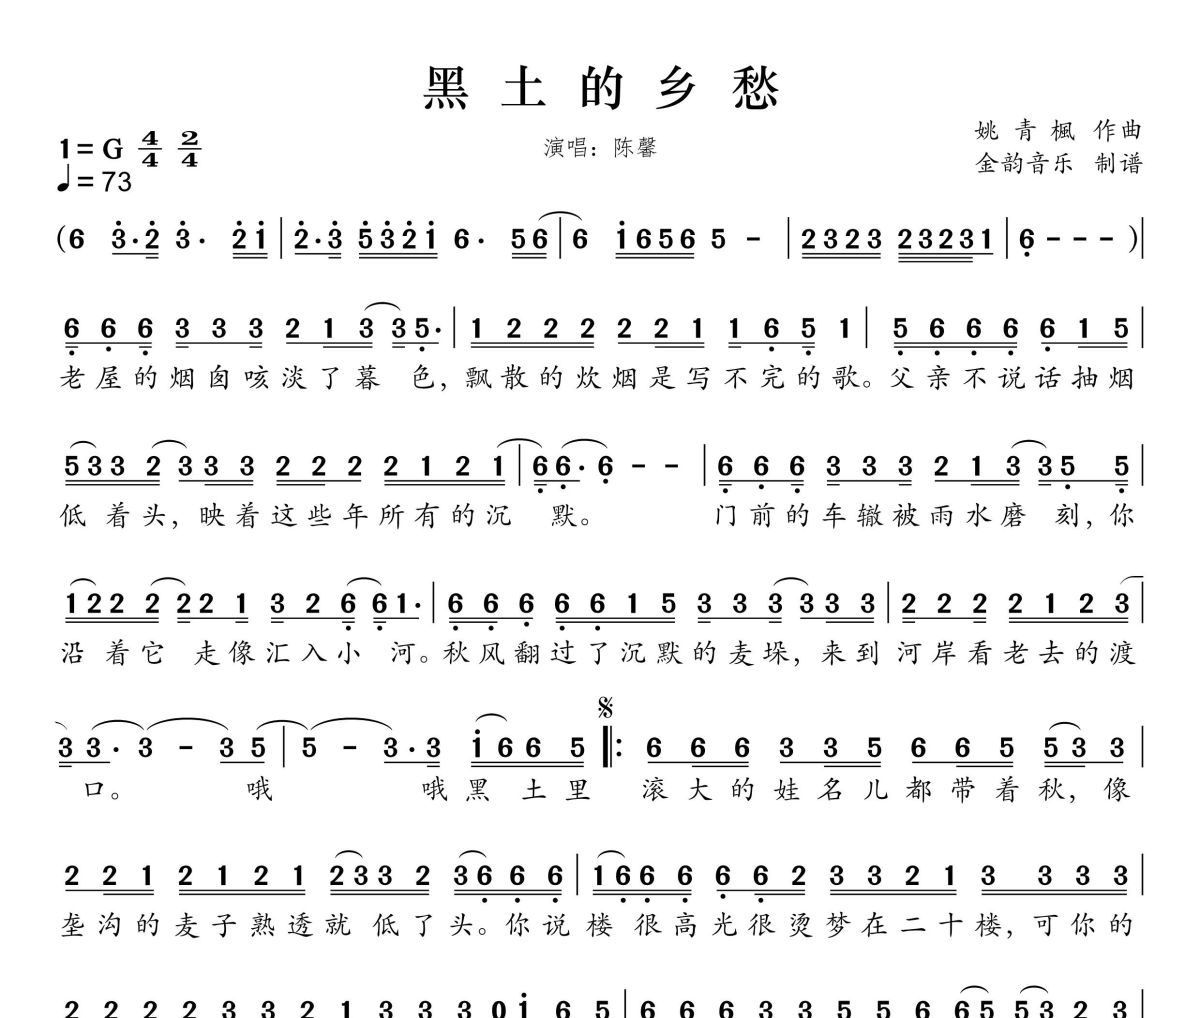 黑土的乡愁
1=G 4/4 2/4
♩=73
演唱：陈馨
姚青楓 作曲
金韵音乐 制谱
(6 3·2 3· 21 | 2·3 5321 6· 56 | 6 1656 5 - | 2323 23231 | 6 - - - )|
6 6 6 3 3 3 2 1 3 3 5· | 1 2 2 2 2 2 1 1 6 5 1 | 5 6 6 6 6 1 5 |
老屋的烟囱咳淡了暮 色，飘散的炊烟是写不完的歌。父亲不说话抽烟
5 3 3 2 3 3 3 2 2 2 2 1 2 1 | 6 6· 6 - - | 6 6 6 3 3 3 2 1 3 3 5 5 |
低 着头，映着这些年所有的沉 默。 门前的车辙被雨水磨 刻，你
1 2 2 2 2 2 1 3 2 6 6 1· | 6 6 6 6 6 1 5 3 3 3 3 3 3 | 2 2 2 2 1 2 3 |
沿 着它 走像汇入小 河。秋风翻过了沉默的麦垛，来到河岸看老去的渡
3 3· 3 - 3 5 | 5 - 3·3 1 6 6 5 𝄋 ‖: 6 6 6 3 3 5 6 6 5 5 3 3 |
口。 哦 哦黑 土里 滚大的娃名儿都带着秋，像
2 2 1 2 1 2 1 2 3 3 2 3 6 6 6 | 1 6 6 6 6 6 2 3 3 2 1 3 3 3 3 |
垄沟的麦子熟透就 低了头。你说楼 很高光很烫梦在二十楼，可你的
2 2 2 2 3 3 2 1 3 3 3 0 1 6 5 | 6 6 6 3 3 5 5 6 6 5 5 3 2 3 |